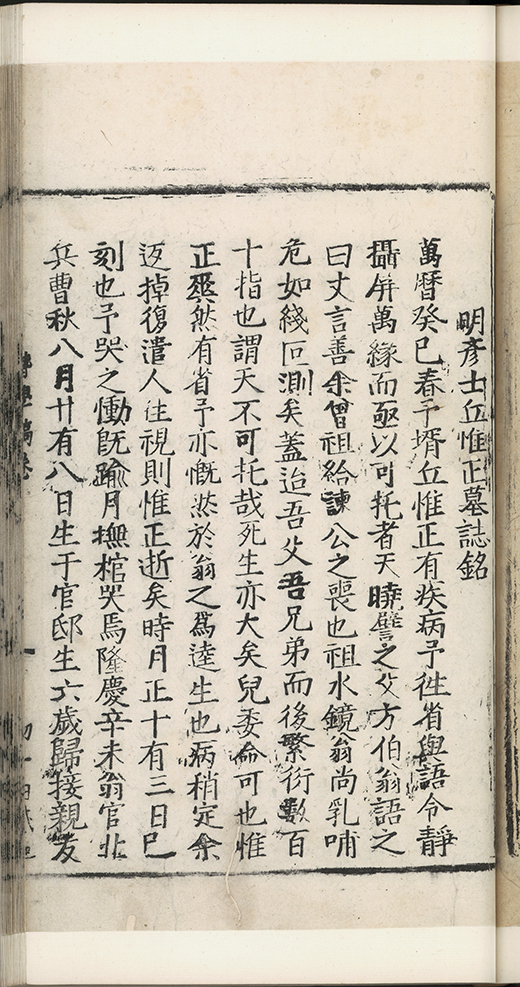 明彥士丘惟正墓誌銘
萬曆癸巳春予壻丘惟正有疾病予徃省與語令靜
攝屏萬緣而亟以可托者天曉譬之父方伯翁語之
曰丈言善余曾祖給諫公之喪也祖水鏡翁尚乳哺
危如綫叵測矣蓋迨吾父吾兄弟而後繁衍數百
十指也謂天不可托哉死生亦大矣兒委命可也惟
正蹙然有省予亦慨然於翁之爲逹生也病稍定余
返掉復遣人徃視則惟正逝矣時月正十有三日巳
刻也予哭之慟旣踰月撫棺哭焉隆慶辛未翁官北
兵曹秋八月廿有八日生于官邸生六歲歸接親友